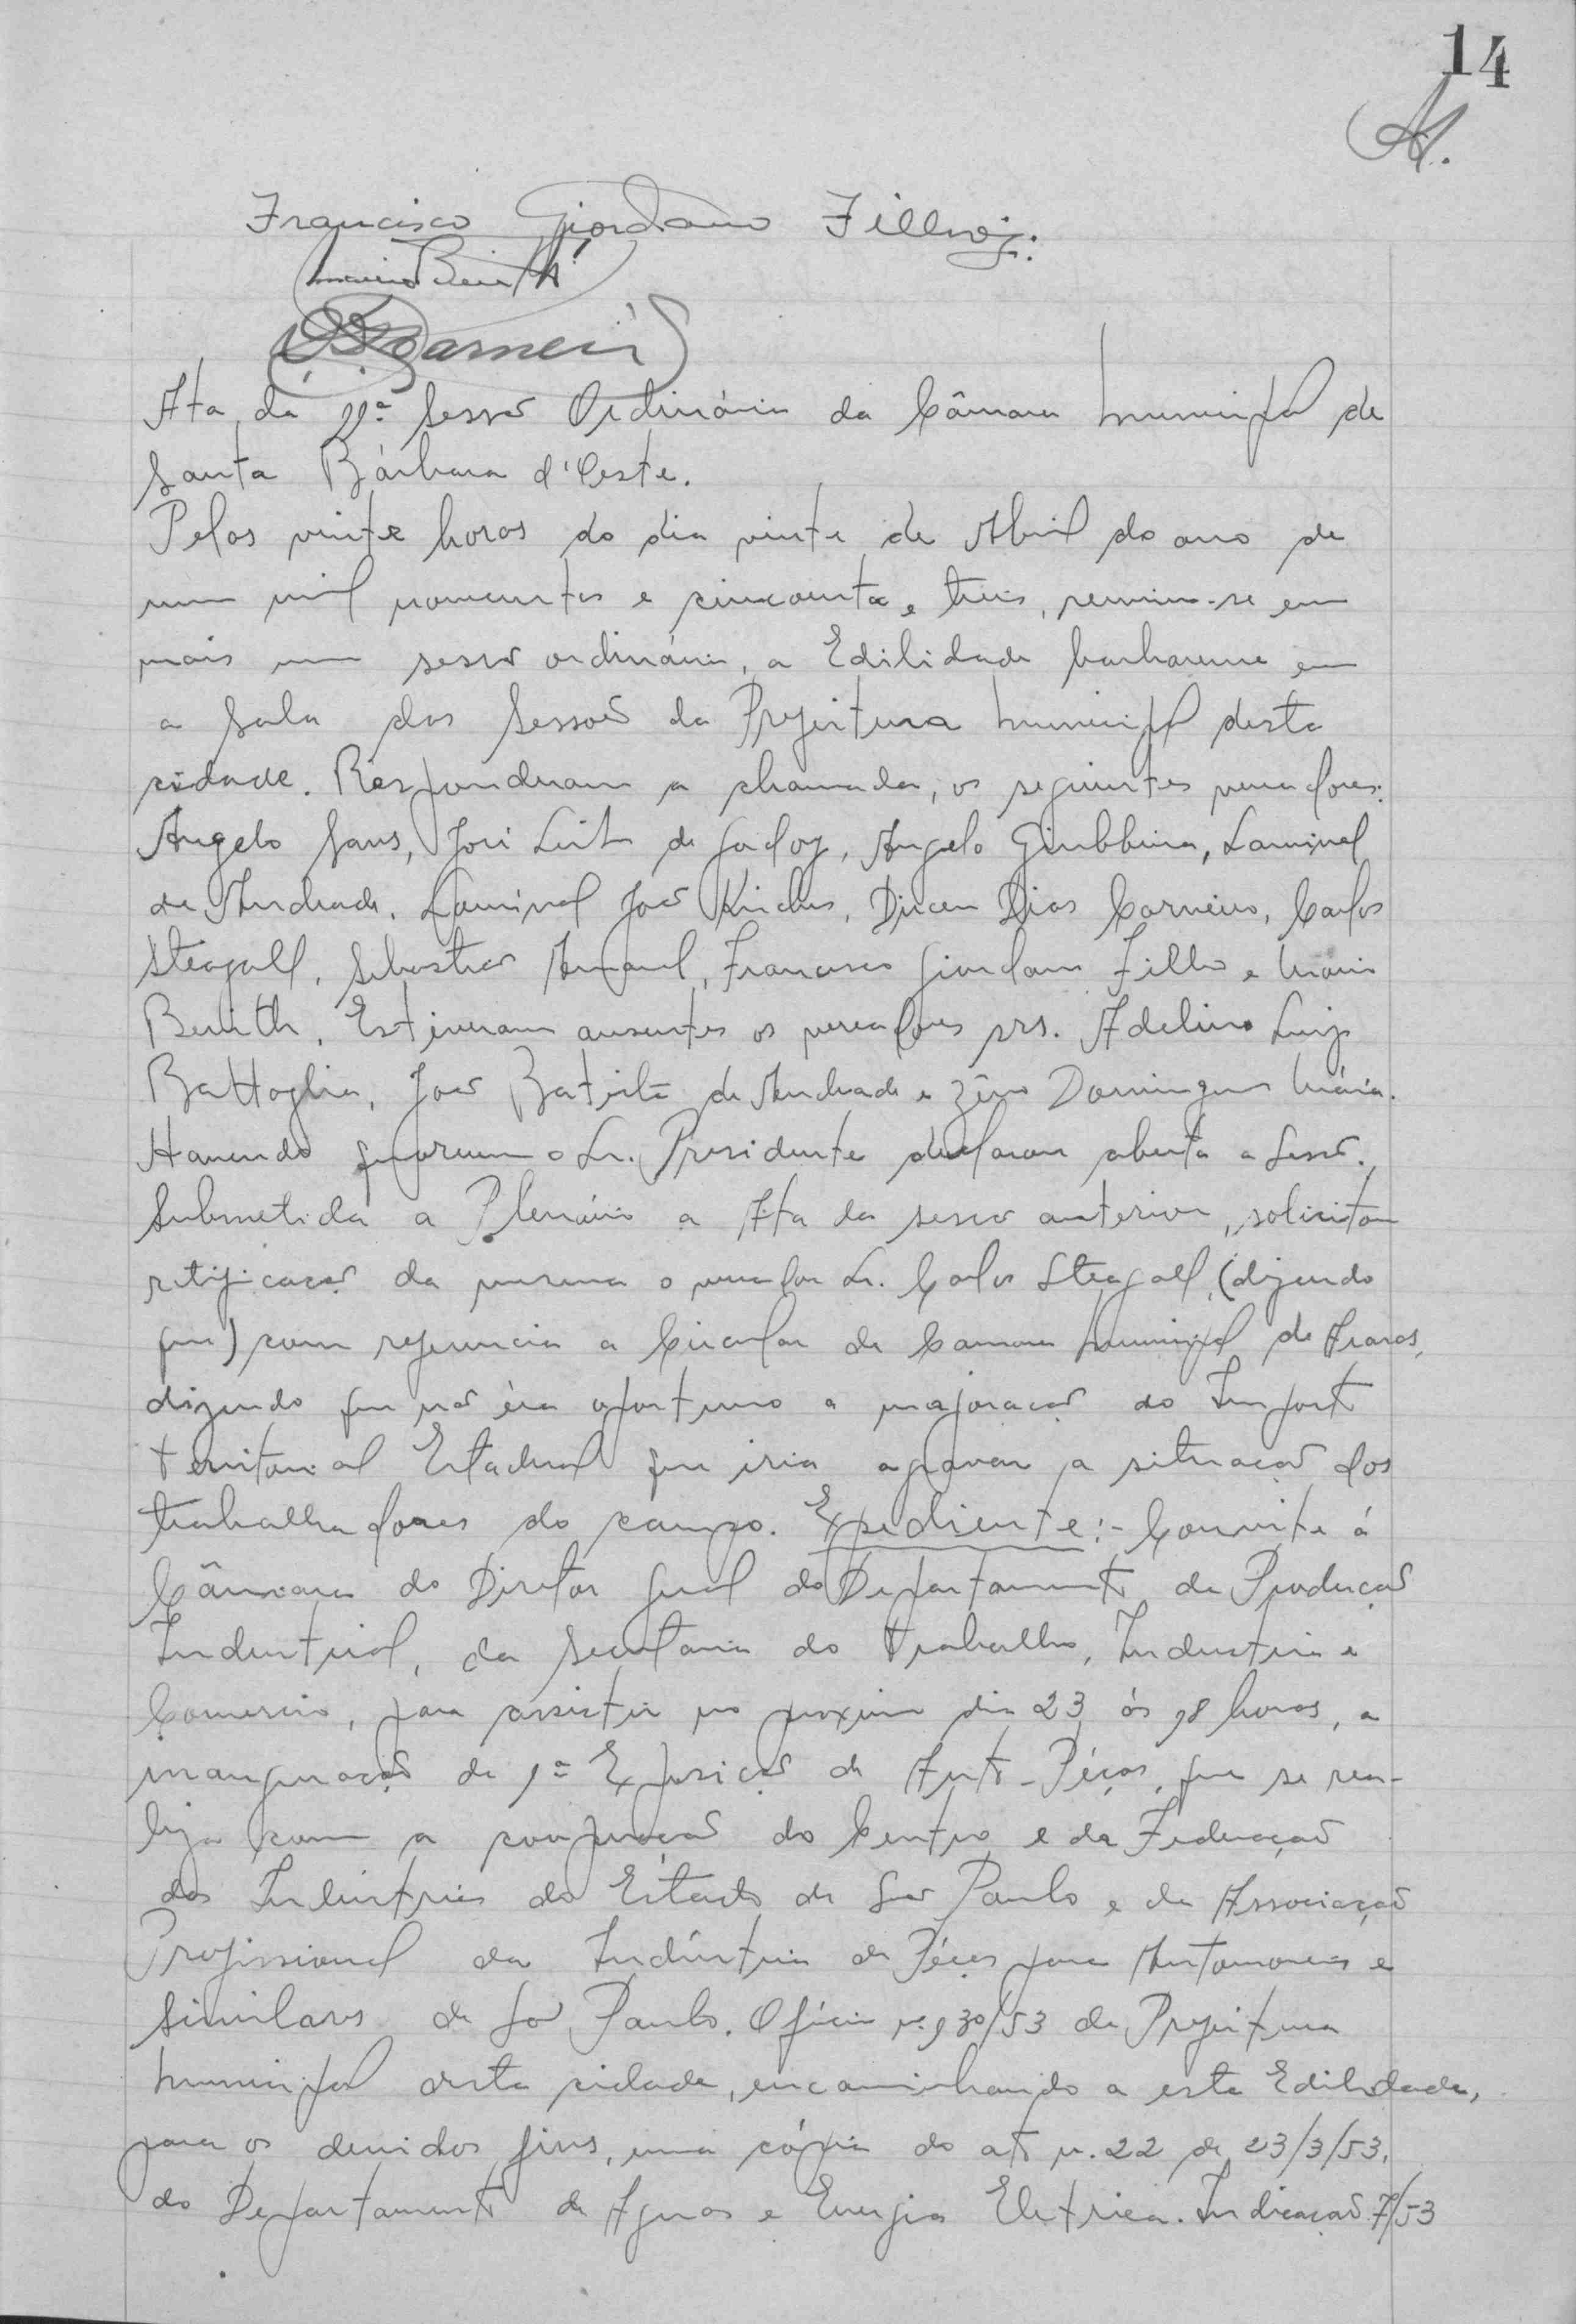 14
Francisco Giordano Filho
Mario Benith
D. D. Carneiro
Ata da 11ª Sessão Ordinária da Câmara Municipal de
Santa Bárbara d'Oeste.
Pelas vinte horas do dia vinte de Abril do ano de
um mil novecentos e cincoenta e três, reuniu-se em
mais uma sessão ordinária, a Edilidade barbarense em
a Sala das Sessões da Prefeitura Municipal desta
cidade. Responderam a chamada, os seguintes vereadores:
Angelo Sans, José Leite de Godoy, Angelo Giubbina, Laminel
de Andrade, Laminel João Kirches, Dirceu Dias Carneiro, Carlos
Steagall, Sebastião Amaral, Francisco Giordano Filho e Mario
Benith. Estiveram ausentes os vereadores srs. Adelino Luiz
Battaglia, João Batista de Andrade e Zêno Domingues Máia.
Havendo quorum o Sr. Presidente declarou aberta a Sessão.
Submetida a Plenário a Ata da sessão anterior, solicitou
retificação da mesma o vereador Sr. Carlos Steagall, (dizendo
que) com referencia a Circular da Camara Municipal de
dizendo que não éra oportuno a majoração do Imposto
territorial Estadual que iria agravar a situação dos
trabalhadores do campo. Expediente:- Convite á
Câmara do Diretor Geral do Departamento da Produção
Industrial, da Secretaria do Trabalho, Industria e
Comercio, para assistir no proximo dia 23 ás 18 horas, a
inauguração da 1ª Exposição de Auto-Péças, que se rea-
liza com a cooperação do Centro e da Federação
das Industrias do Estado de São Paulo e da Associação
Profissional da Indústria de Péças para Automoveis e
Similares de São Paulo. Oficio n. 130/53 da Prefeitura
Municipal desta cidade, encaminhando a esta Edilidade,
para os devidos fins, uma cópia do ato n. 22 de 23/3/53,
do Departamento de Aguas e Energia Eletrica. Indicação 7/53